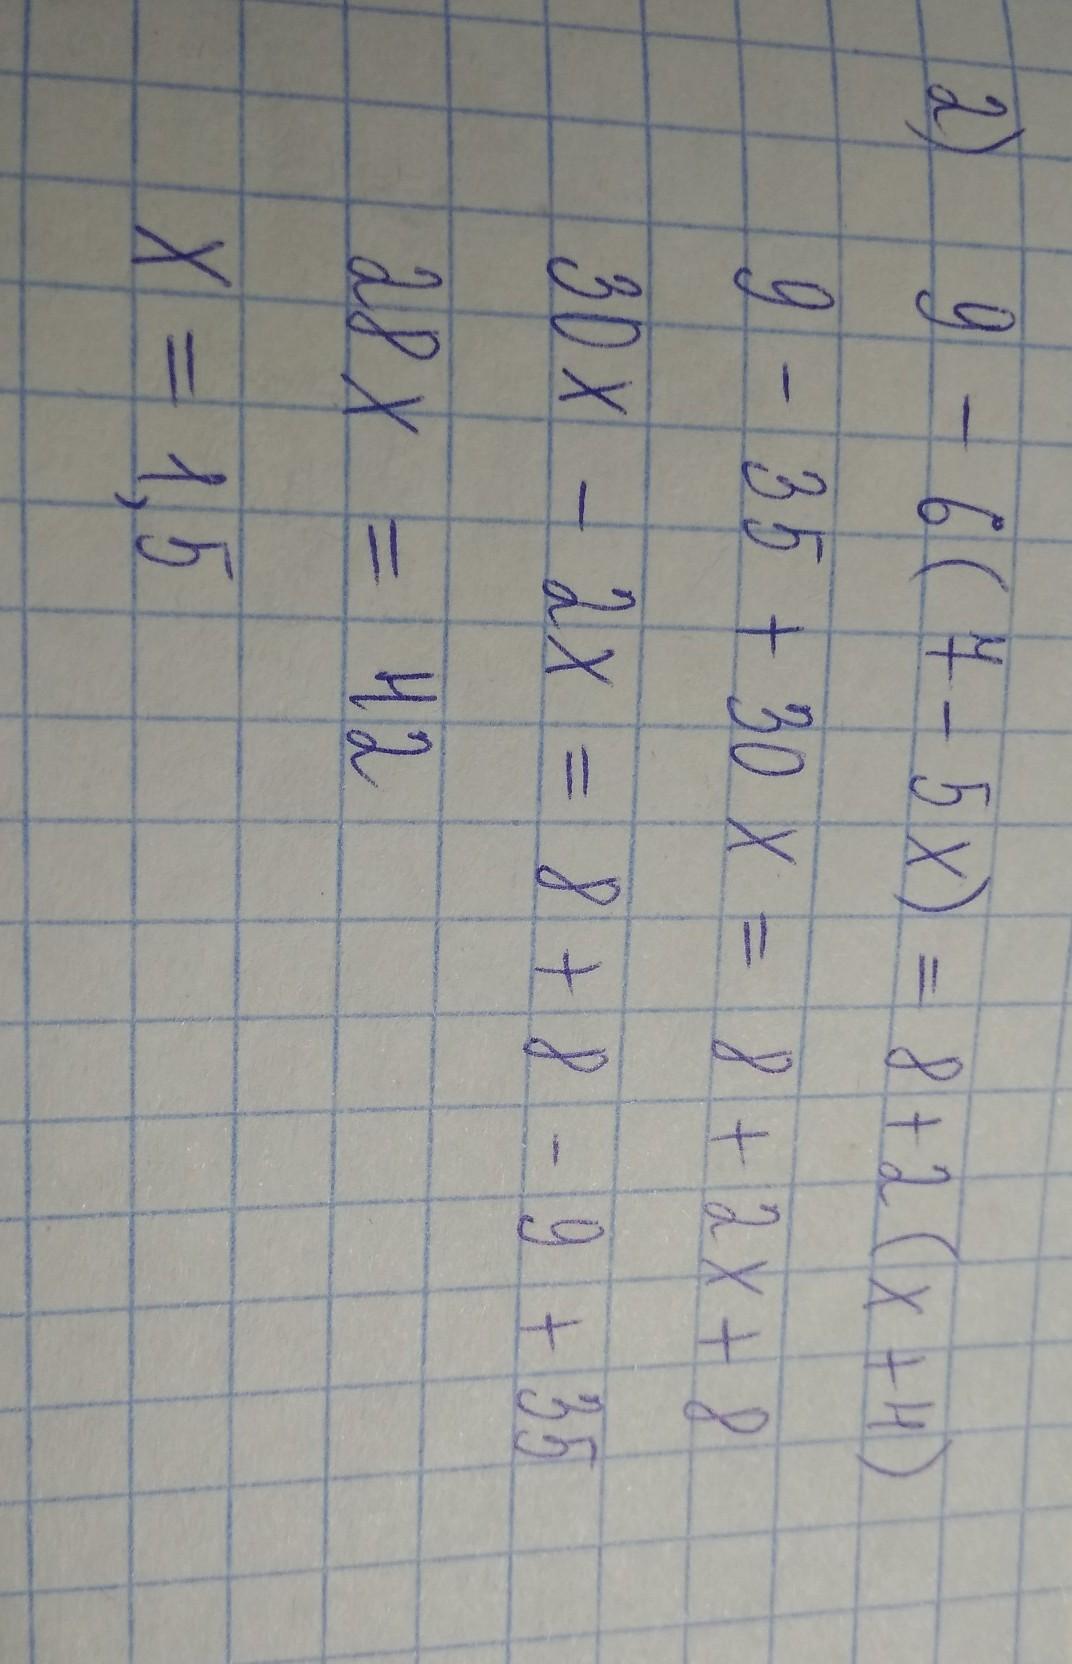 2) 9 - 6(7 - 5x) = 8 + 2(x + 4)
9 - 35 + 30x = 8 + 2x + 8
30x - 2x = 8 + 8 - 9 + 35
28x = 42
x = 1,5